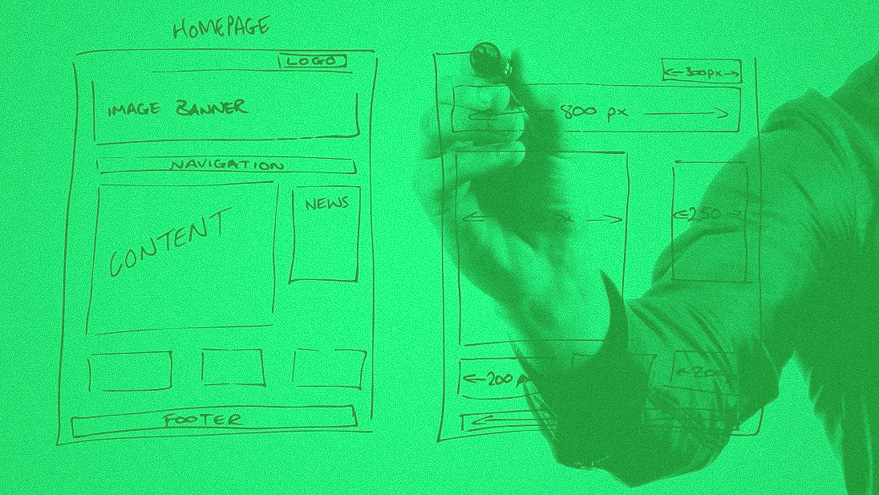 HOMEPAGE
LOGO
IMAGE BANNER
NAVIGATION
CONTENT
NEWS
FOOTER
300px
800 px
250
200